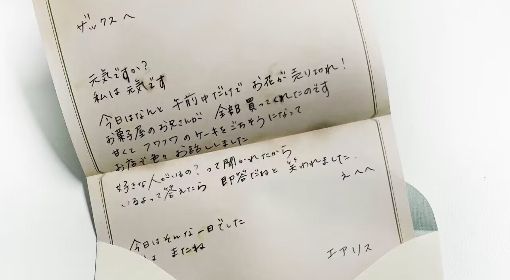 ザックスへ
元気ですか?
私は元気です
今日はなんと午前中だけで お花が売り切れ!
お菓子屋のお兄さんが 全部買ってくれたのです
甘くてフワフワのケーキをごちそうになって
お店で色々お話ししました
好きな人がいるの?って聞かれたから
いるよって答えたら 即答だねと笑われました
えへへ
今日はそんな一日でした
またね
エアリス